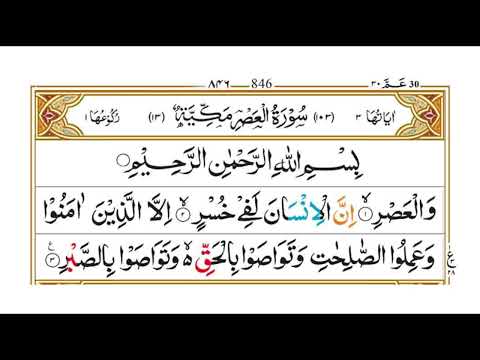 ٨٤٦ 846 عَمَّ ٣٠ 30
اٰيَاتُهَا ٣ (١٠٣) سُوْرَةُ الْعَصْرِ مَكِّيَّةٌ (١٣) رُكُوْعُهَا ١
بِسْمِ اللّٰهِ الرَّحْمٰنِ الرَّحِيْمِ
وَالْعَصْرِ ۙ﴿۱﴾ اِنَّ الْاِنْسَانَ لَفِيْ خُسْرٍ ۙ﴿۲﴾ اِلَّا الَّذِيْنَ اٰمَنُوْا
وَعَمِلُوا الصّٰلِحٰتِ وَتَوَاصَوْا بِالْحَقِّ ۙ۬ وَتَوَاصَوْا بِالصَّبْرِ ﴿۳﴾